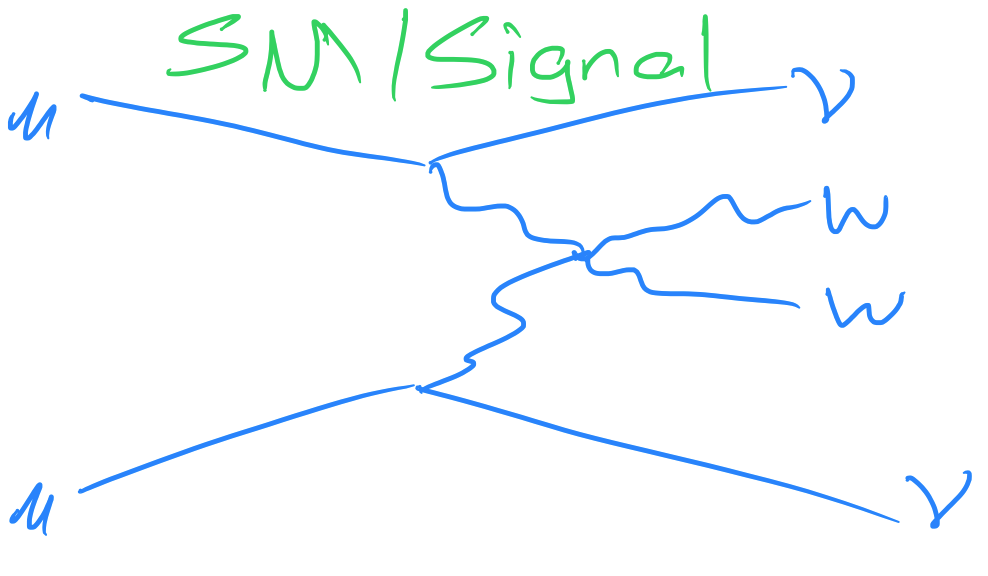 SM/Signal
μ
ν
W
W
μ
ν